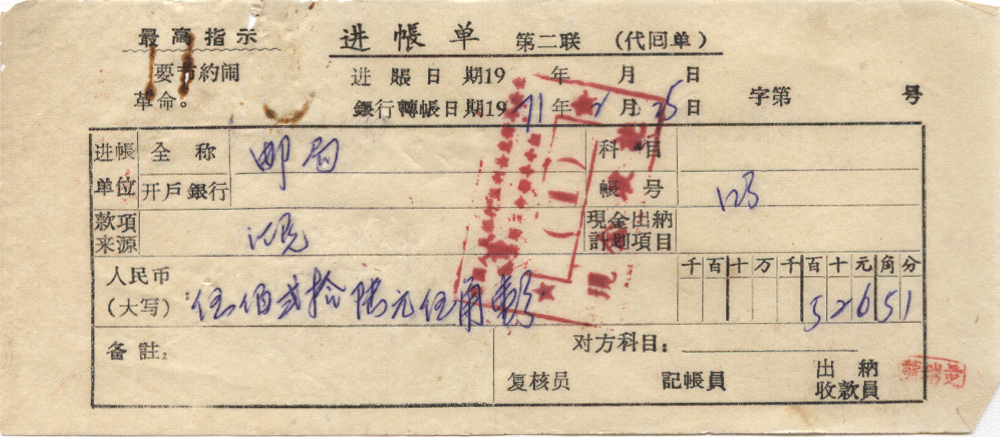 最高指示
要节約闹
革命。
进帳单 第二联 (代囘单)
进賬日期19 年 月 日
銀行轉帳日期19 71年 月 25日 字第 号
进帳单位 全称 邮局 科目
开戶銀行 帳号
款項来源 现金出納計划項目
人民币(大写) 伍佰弍拾陆元伍角
千百十万千百十元角分
52651
备註: 对方科目:
复核员 記帳員 出納收款員